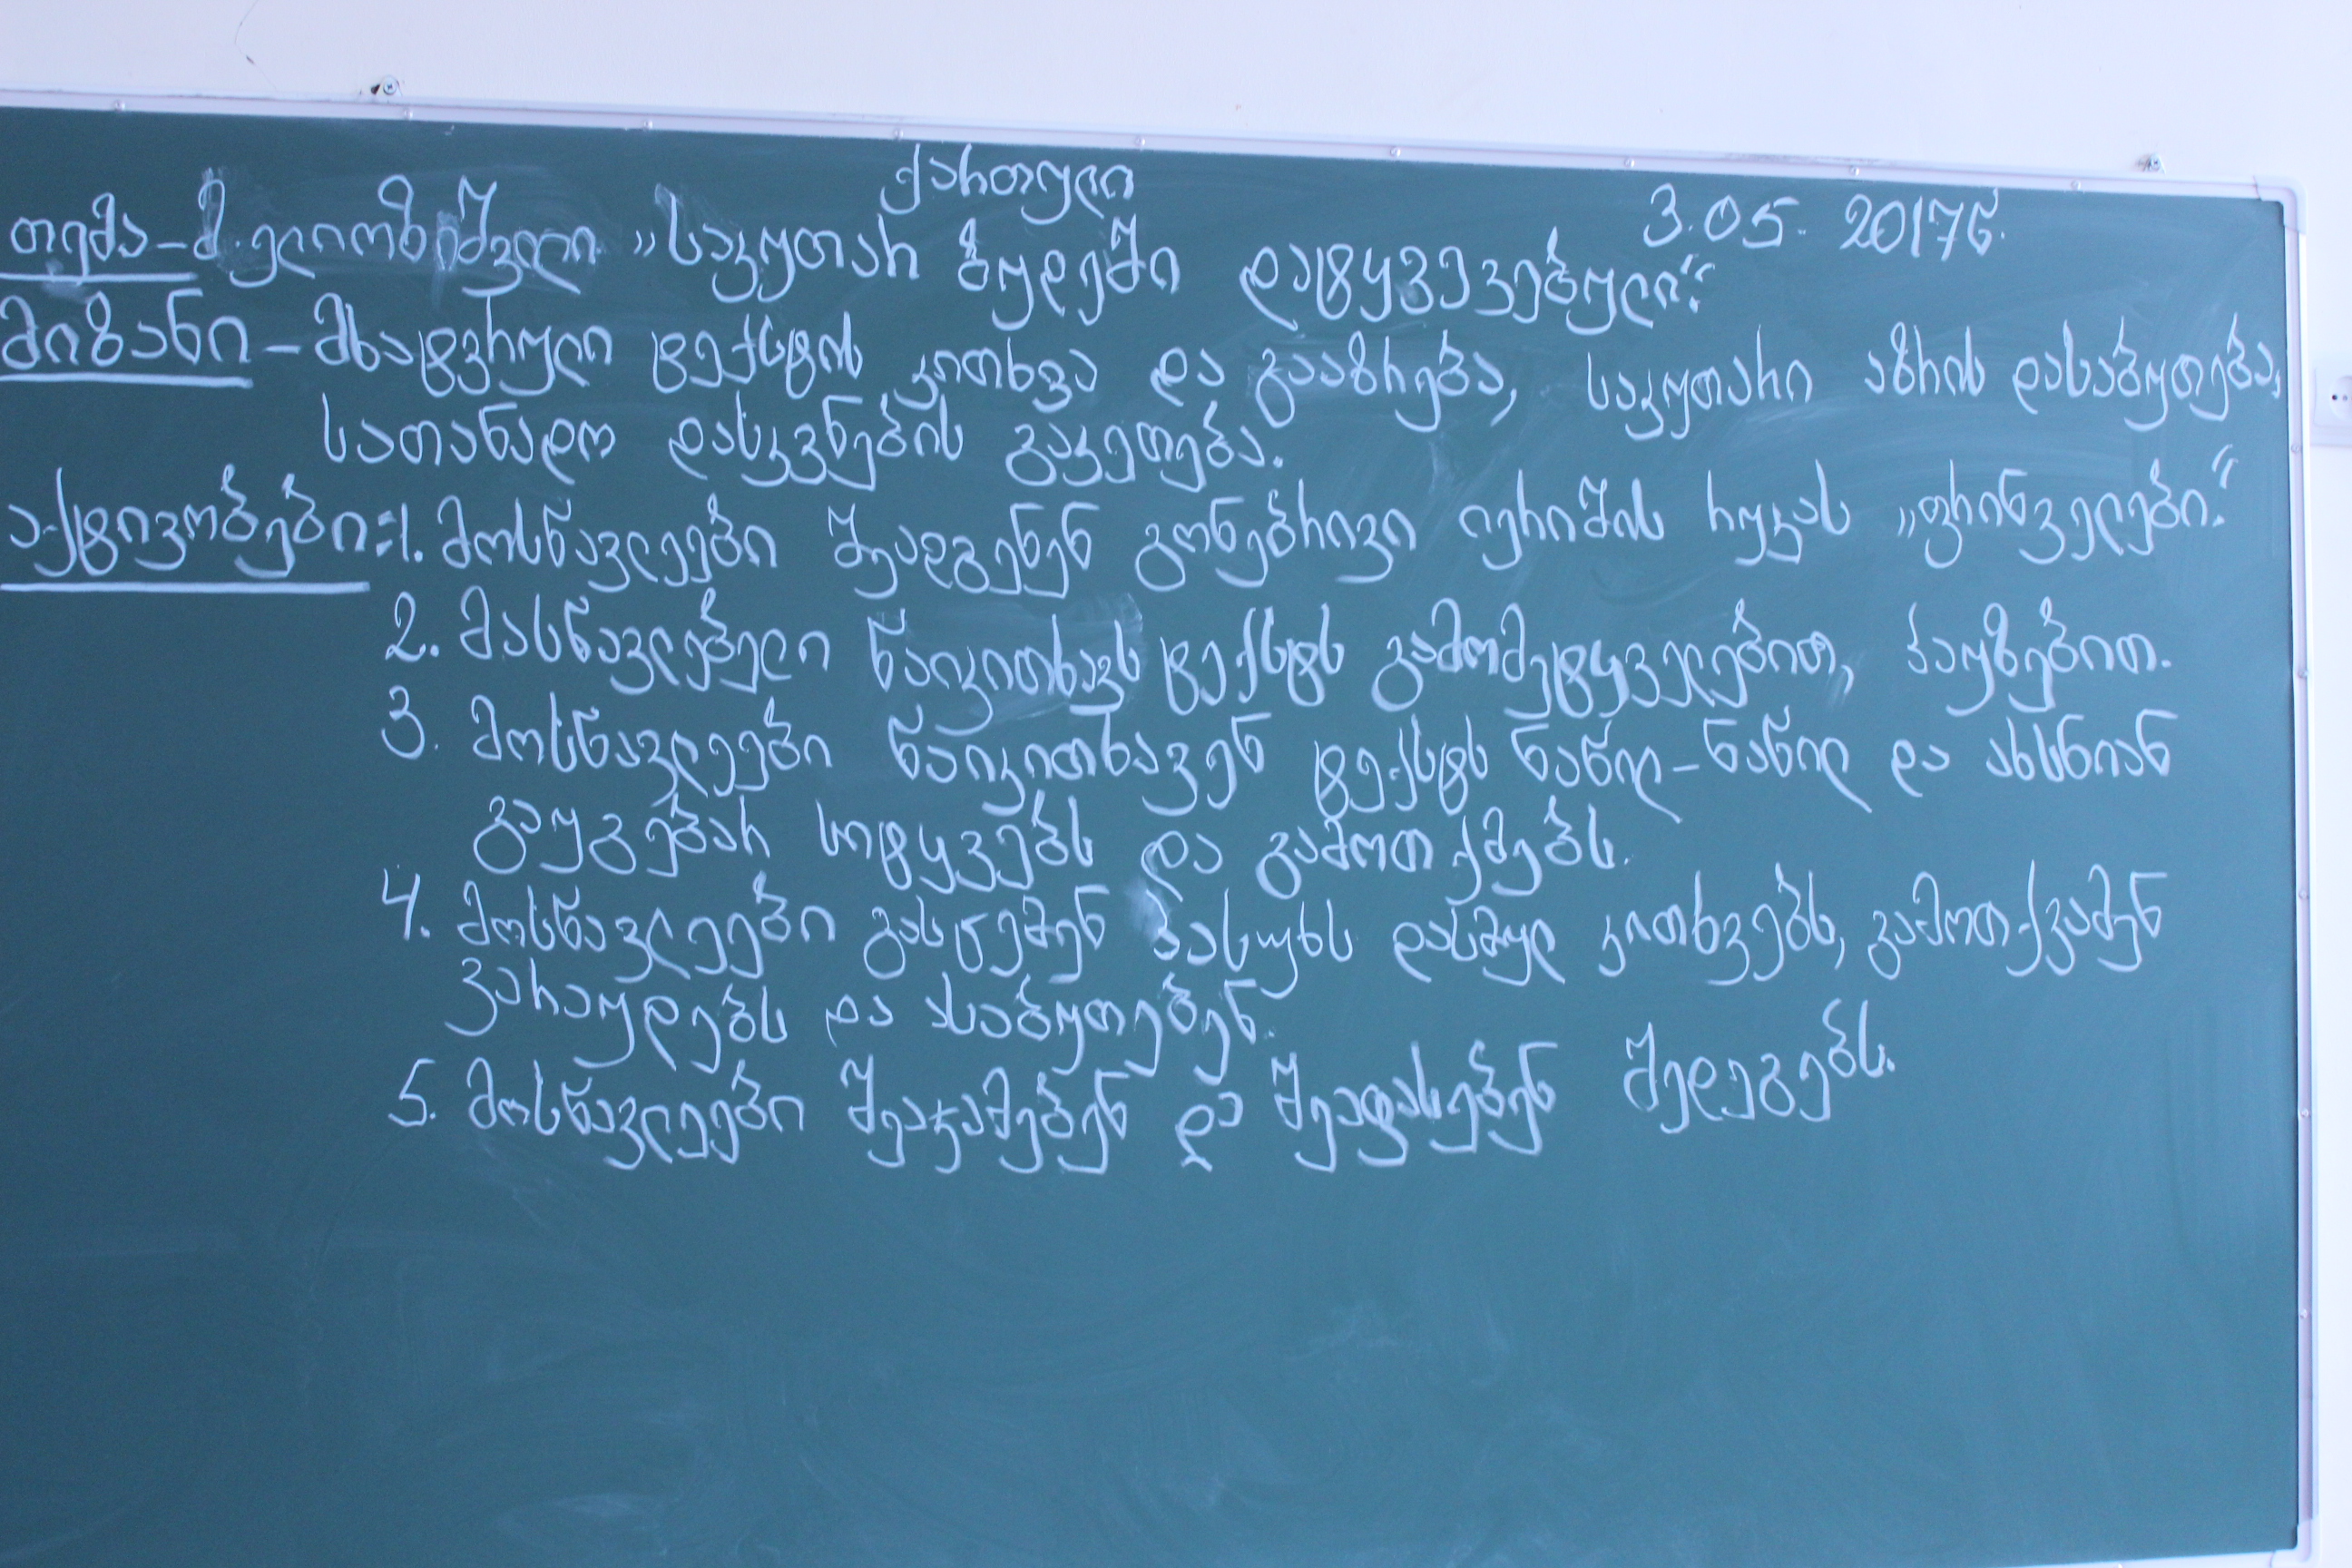 ქართული
3.05. 2017წ.
თემა – მ. ელიოზიშვილი „საკუთარ ბუდეში დატყვევებული“.
მიზანი – მხატვრული ტექსტის კითხვა და გააზრება, საკუთარი აზრის დასაბუთება,
სათანადო დასკვნების გაკეთება.
აქტივობები: 1. მოსწავლეები შეადგენენ გონებრივი იერიშის რუკას „ფრინველები“.
2. მასწავლებელი წაიკითხავს ტექსტს გამომეტყველებით, პაუზებით.
3. მოსწავლეები წაიკითხავენ ტექსტს ნაწილ-ნაწილ და ახსნიან
გაუგებარ სიტყვებს და გამოთქმებს.
4. მოსწავლეები გასცემენ პასუხს დასმულ კითხვებს, გამოთქვამენ
ვარაუდებს და ასაბუთებენ.
5. მოსწავლეები შეაჯამებენ და შეაფასებენ შედეგებს.